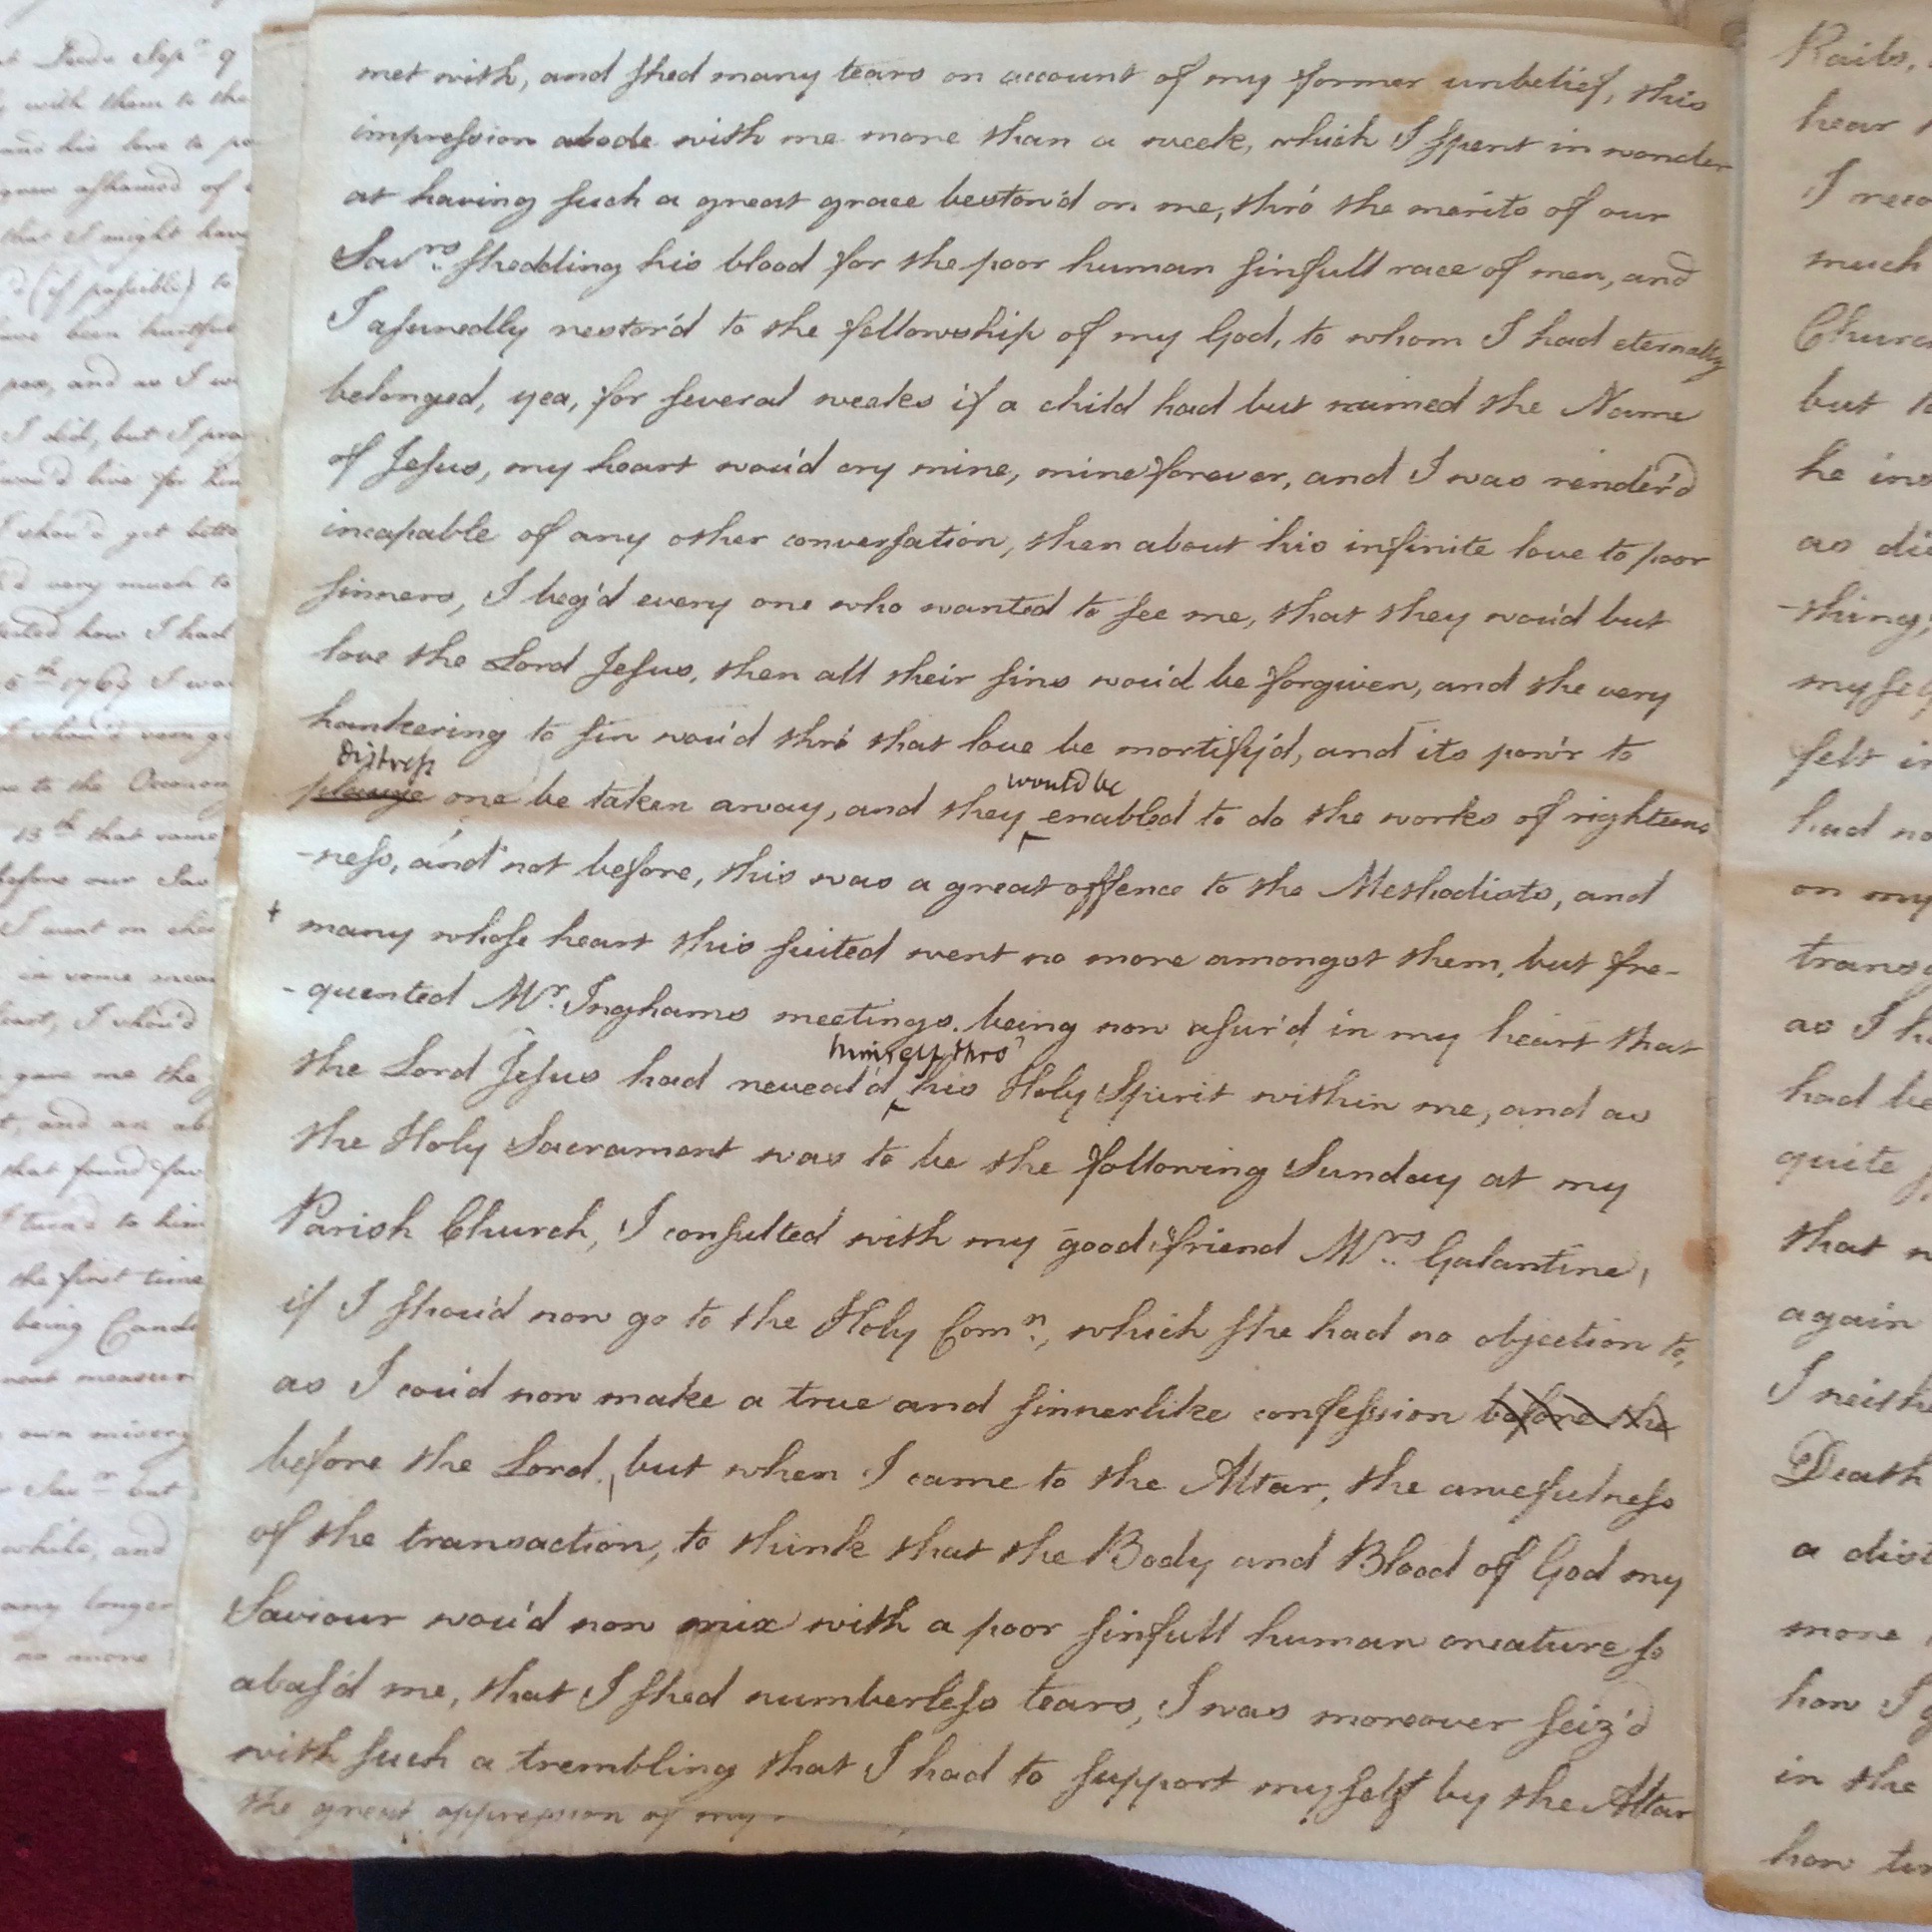 met with, and shed many tears on account of my former unbelief, this
impression abode with me more than a week, which I spent in wonder
at having such a great grace bestow'd on me, thro' the merits of our
Savrs. shedding his blood for the poor human sinfull race of men, and
I assuredly restor'd to the fellowship of my God, to whom I had eternally
belonged, yea, for several weeks if a child had but named the Name
of Jesus, my heart wou'd cry mine, mine forever, and I was render'd
incapable of any other conversation, then about his infinite love to poor
sinners, I beg'd every one who wanted to see me, that they wou'd but
love the Lord Jesus, then all their sins wou'd be forgiven, and the very
hankering to sin wou'd thro' that love be mortify'd, and its pow'r to
distress
plauge one be taken away, and they would be enabled to do the works of righteous
-ness, and not before, this was a great offence to the Methodists, and
+ many whose heart this suited went no more amongst them, but fre-
-quented Mr. Inghams meetings. being now assur'd in my heart that
the Lord Jesus had reveal'd himself thro' his Holy Spirit within me, and as
the Holy Sacrament was to be the following Sunday at my
Parish Church, I consulted with my good friend Mrs. Galantine,
if I shou'd now go to the Holy Comn., which she had no objection to,
as I cou'd now make a true and sinnerlike confession before the
before the Lord., but when I came to the Altar, the awefulness
of the transaction, to think that the Body and Blood of God my
Saviour wou'd now mix with a poor sinfull human creature so
abas'd me, that I shed numberless tears, I was moreover seiz'd
with such a trembling that I had to support myself by the Altar
the great oppression of my
Rails,
hear
I
much
Church
but
he
as
-thing,
myself
felt
had no
on my
as I
had be
quite
that
again
I neithe
Death
a dist
more
how I
in the
how
with them to the
his love to
asham'd of
that I might have
(if possible) to
have been
and as I
I did, but I
wou'd live for him
I shou'd get
very much to
how I had
5th 1769 I was
to the
13th that same
before our Sav
I went on
in some mea
I shou'd
gave me the
and an
that found fav
I turn'd to him
the first time
being Cand
own misery
Savr but
while, and
any longer
no more